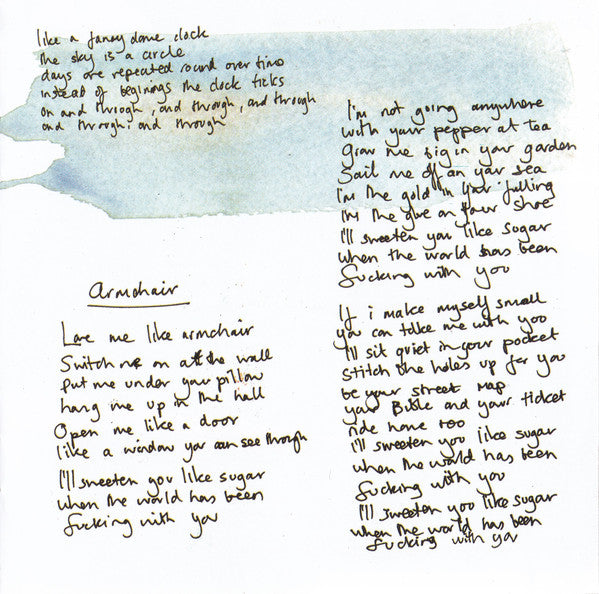 like a fancy dome clock
the sky is a circle
days are repeated round over time
instead of beginings the clock ticks
on and through, and through, and through
and through. and through
Armchair
Love me like armchair
Switch me on at the wall
put me under your pillow
hang me up in the hall
Open me like a door
like a window you can see through
I'll sweeten you like sugar
when the world has been
fucking with you
I'm not going anywhere
with your pepper at tea
Grow me big in your garden
Sail me off on your sea
I'm the gold in your filling
I'm the glue on your shoe
I'll sweeten you like sugar
when the world has been
fucking with you
If i make myself small
you can take me with you
I'll sit quiet in your pocket
stitch the holes up for you
be your street map
your Bible and your ticket
ride home too
I'll sweeten you like sugar
when the world has been
fucking with you
I'll sweeten you like sugar
when the world has been
fucking with you